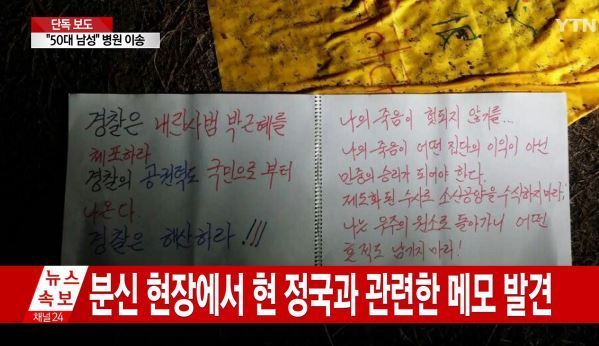 단독 보도
"50대 남성" 병원 이송
YTN
경찰은 내란사범 박근혜를
체포하라
경찰의 공권력도 국민으로 부터
나온다.
경찰은 해산하라 !!!
나의 죽음이 헛되지 않기를...
나의 죽음이 어떤 집단의 이익이 아닌
민중의 승리가 되어야 한다.
제도화된 수사로 소신공양을 수식하지마라,
나는 우주의 원소로 돌아가니 어떤
흔적도 남기지 마라!
뉴스
속보
채널24
분신 현장에서 현 정국과 관련한 메모 발견